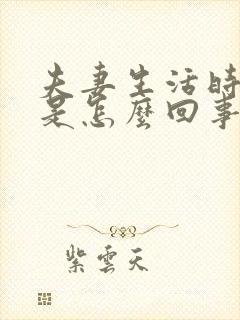 夫妻生活時
是怎麼回事
紫雲天